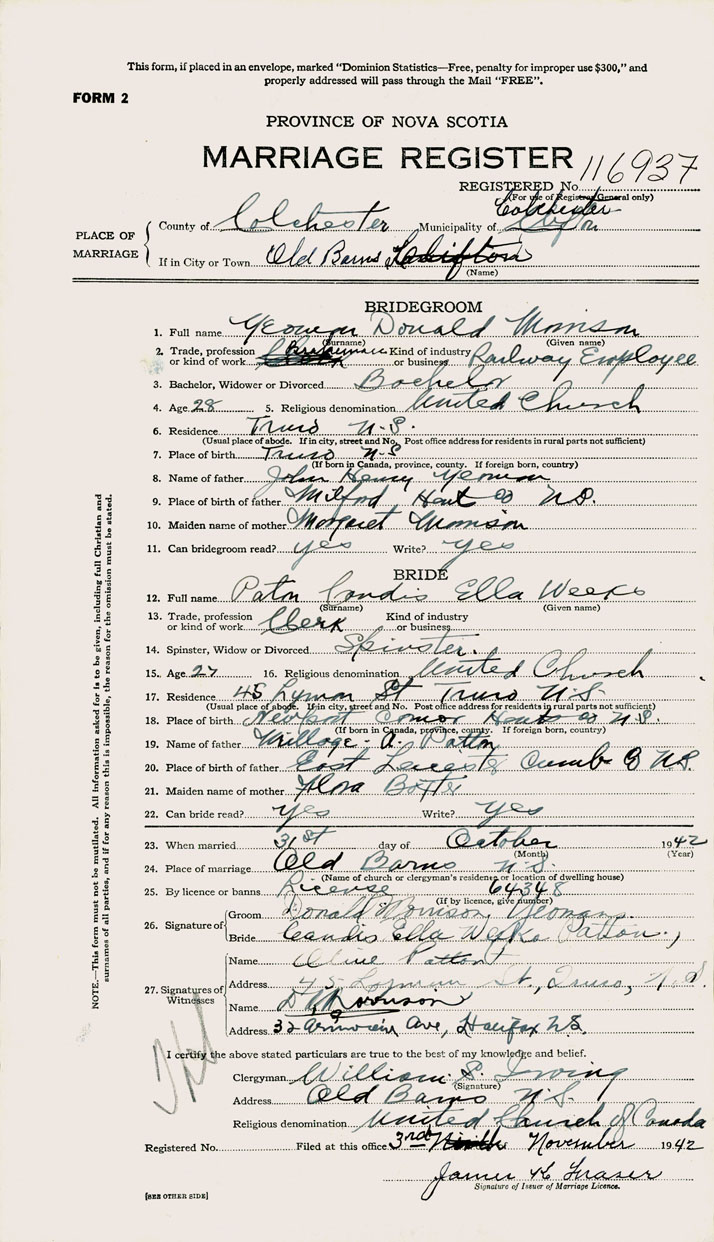 This form, if placed in an envelope, marked "Dominion Statistics—Free, penalty for improper use $300," and
properly addressed will pass through the Mail "FREE".
FORM 2
PROVINCE OF NOVA SCOTIA
MARRIAGE REGISTER
116937
REGISTERED No.
(For use of Registrar General only)
Colchester
PLACE OF MARRIAGE
County of Colchester Municipality of
If in City or Town Old Barns
(Name)
BRIDEGROOM
1. Full name Yeoman Donald Morrison
(Surname) (Given name)
2. Trade, profession or kind of work Brakeman Kind of industry or business Railway Employee
3. Bachelor, Widower or Divorced Bachelor
4. Age 28 5. Religious denomination United Church
6. Residence Truro N.S.
(Usual place of abode. If in city, street and No. Post office address for residents in rural parts not sufficient)
7. Place of birth Truro N-S
(If born in Canada, province, county. If foreign born, country)
8. Name of father John Henry Yeoman
9. Place of birth of father Milford Hant Co N.S.
10. Maiden name of mother Margaret Morrison
11. Can bridegroom read? yes Write? yes
BRIDE
12. Full name Paton Candis Ella Weeks
(Surname) (Given name)
13. Trade, profession or kind of work Clerk Kind of industry or business
14. Spinster, Widow or Divorced Spinster.
15. Age 27 16. Religious denomination United Church
17. Residence 45 Lyman St Truro N-S
(Usual place of abode. If in city, street and No. Post office address for residents in rural parts not sufficient)
18. Place of birth Newport Hants Co N.S.
(If born in Canada, province, county. If foreign born, country)
19. Name of father A. Patton
20. Place of birth of father East Cumb Co N.S.
21. Maiden name of mother Flora
22. Can bride read? yes Write? yes
23. When married 31st day of October 1942
(Month) (Year)
24. Place of marriage Old Barns N.S.
(Name of church or clergyman's residence or location of dwelling house)
25. By licence or banns License 64348
(If by licence, give number)
26. Signature of
Groom Donald Morrison Yeoman.
Bride Candis Ella Weeks Patton.
27. Signatures of Witnesses
Name Olive Patton
Address 45 Lyman St., Truro, N.S.
Name Morrison
Address 32 Ave, Halifax N.S.
I certify the above stated particulars are true to the best of my knowledge and belief.
Clergyman William S. Irving
(Signature)
Address Old Barns N.S.
Religious denomination United Church of Canada
Registered No. Filed at this office 3rd November 1942
James K Fraser
Signature of Issuer of Marriage Licence.
[SEE OTHER SIDE]
NOTE.—This form must not be mutilated. All information asked for is to be given, including full Christian and
surnames of all parties, and if for any reason this is impossible, the reason for the omission must be stated.